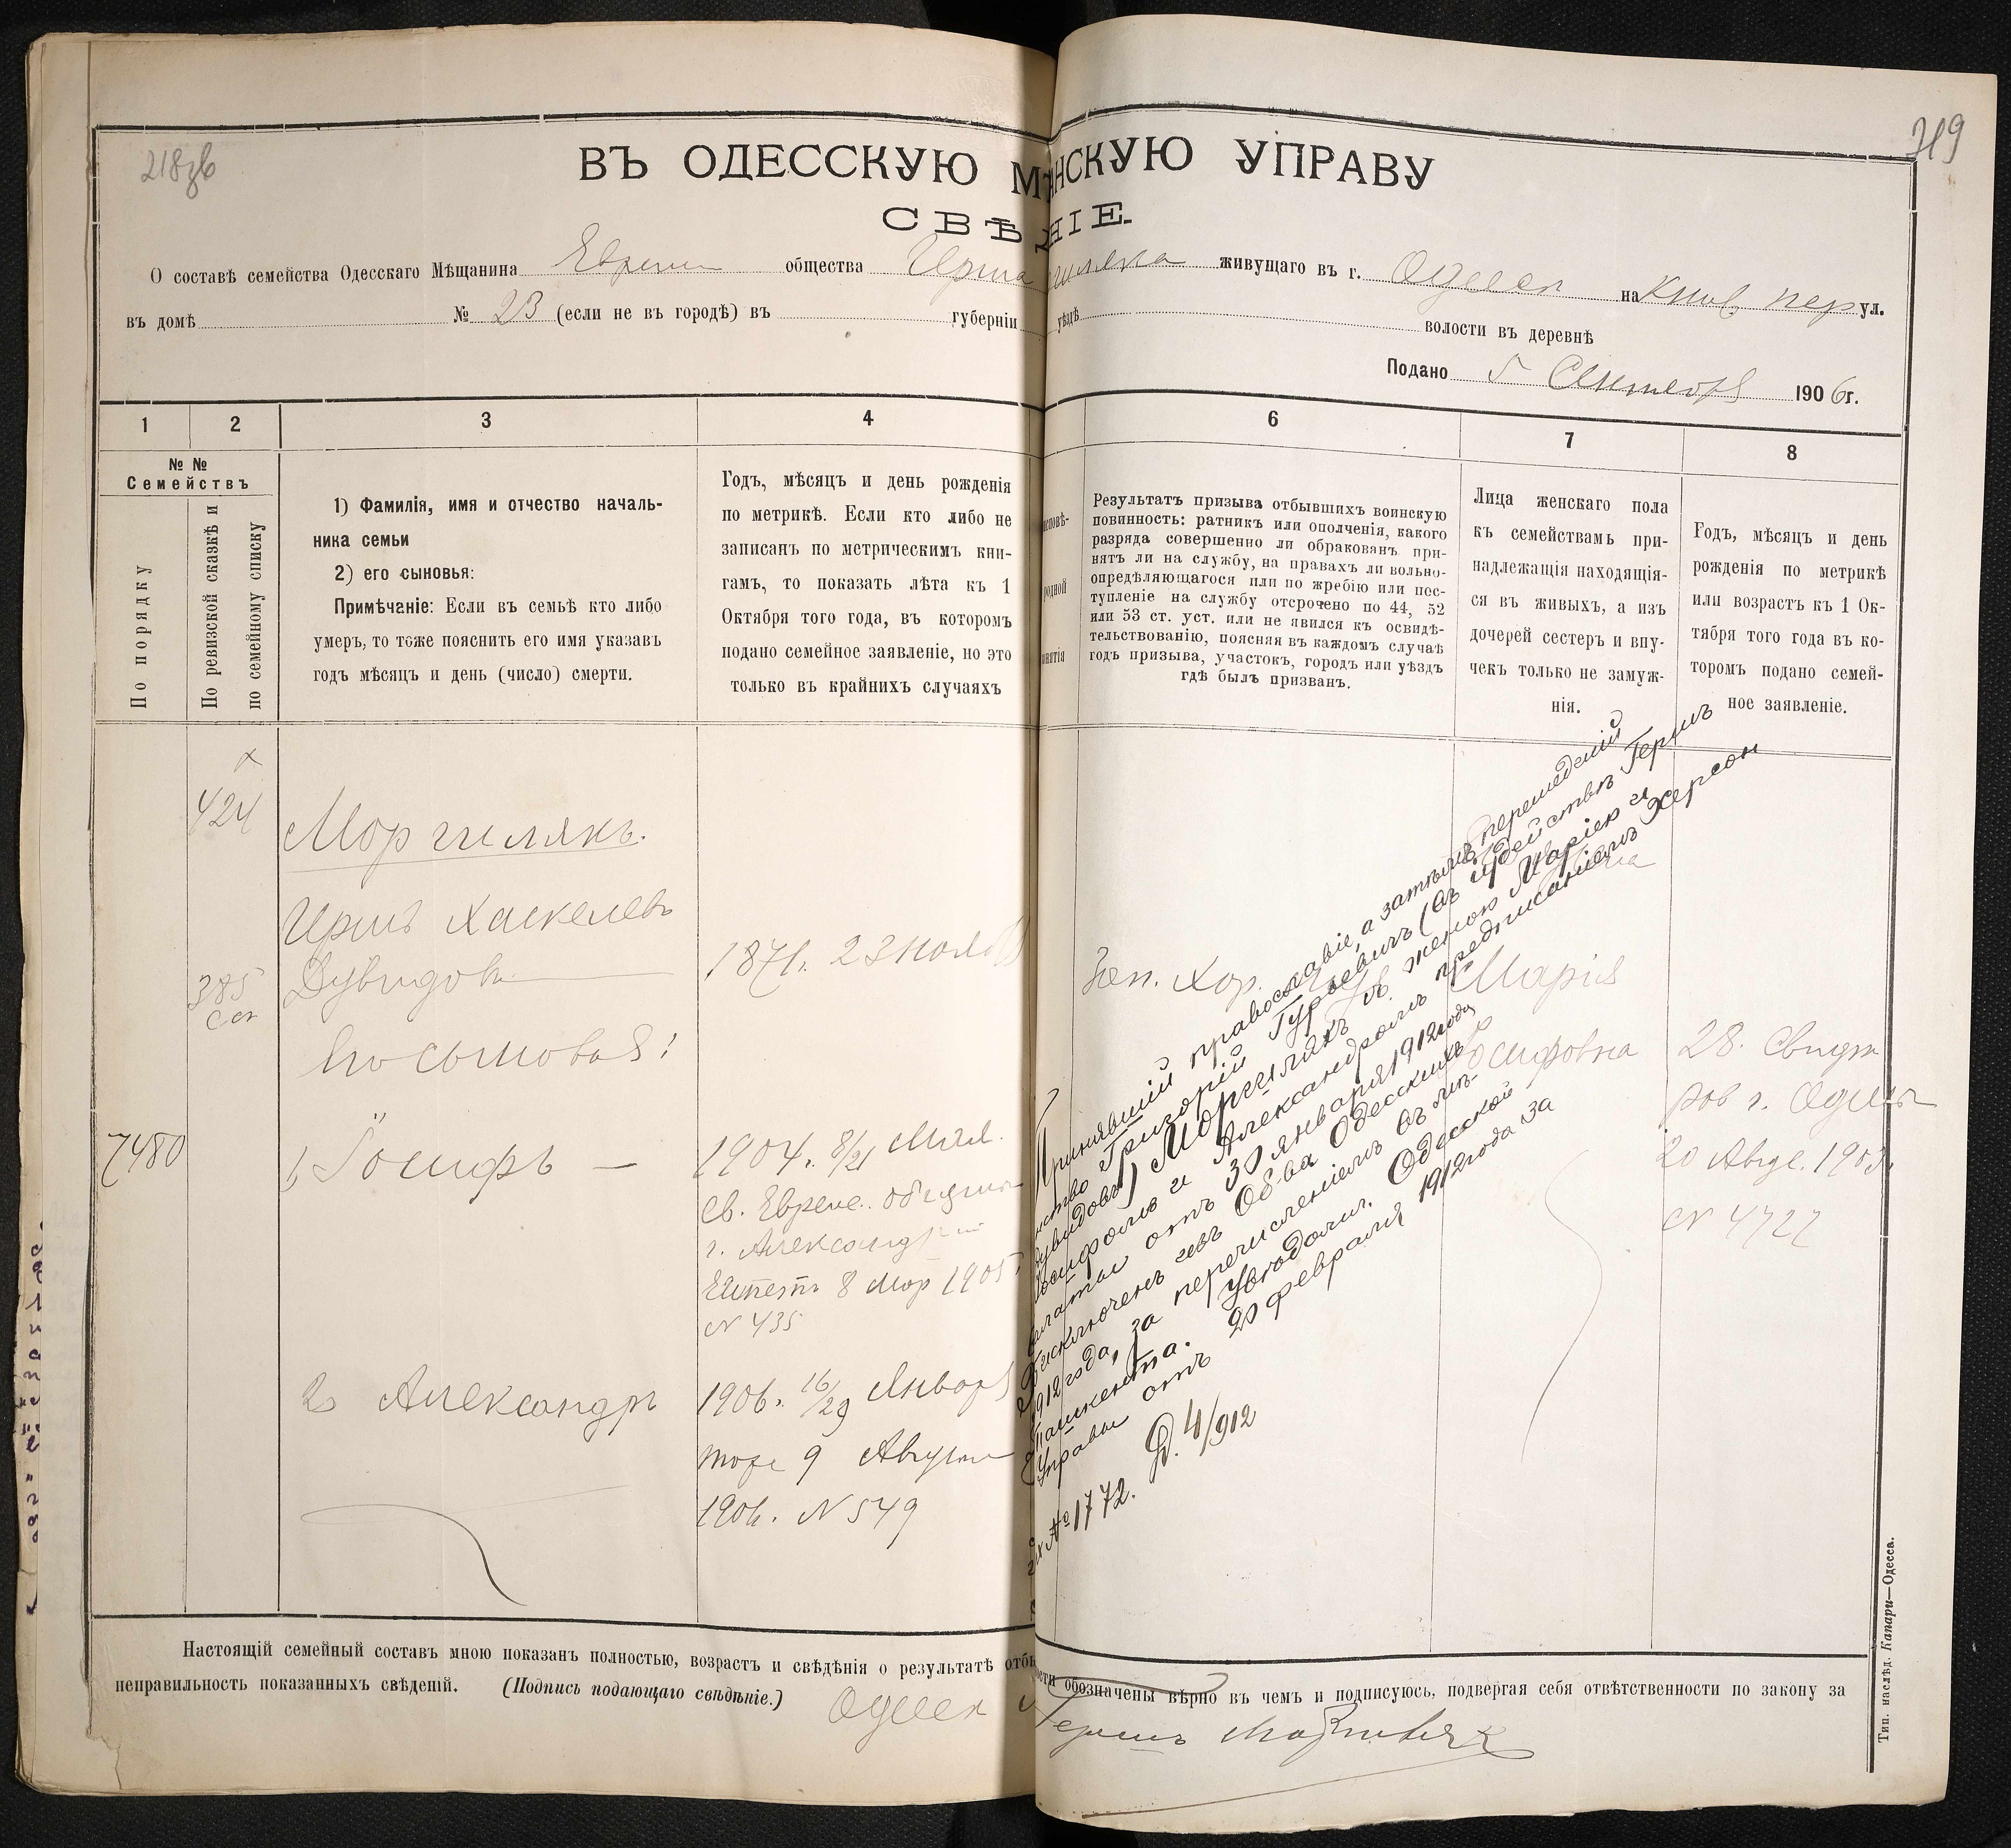 719
ВЪ ОДЕССКУЮ М НСКУЮ УПРАВУ
СВѢ НІЕ.
О составѣ семейства Одесскаго Мѣщанина общества живущаго въ г. Одессѣ на пер ул.
въ домѣ № 23 (если не въ городѣ) въ губерніи уѣздѣ волости въ деревнѣ
Подано 5 Сентября 1906г.
1
2
3
4
6
7
8
№ №
Семействъ
По порядку
По ревизской сказкѣ и
по семейному списку
1) Фамилія, имя и отчество началь-
ника семьи
2) его сыновья:
Примѣчаніе: Если въ семьѣ кто либо
умеръ, то тоже пояснить его имя указавъ
годъ мѣсяцъ и день (число) смерти.
Годъ, мѣсяцъ и день рожденія
по метрикѣ. Если кто либо не
записанъ по метрическимъ кни-
гамъ, то показать лѣта къ 1
Октября того года, въ которомъ
подано семейное заявленіе, но это
только въ крайнихъ случаяхъ
Результатъ призыва отбывшихъ воинскую
повинность: ратникъ или ополченія, какого
разряда совершенно ли обракованъ при-
нятъ ли на службу, на правахъ ли вольно-
опредѣляющагося или по жребію или пос-
тупленіе на службу отсрочено по 44, 52
или 53 ст. уст. или не явился къ освидѣ-
тельствованію, поясняя въ каждомъ случаѣ
годъ призыва, участокъ, городъ или уѣздъ
гдѣ былъ призванъ.
Лица женскаго пола
къ семействамъ при-
надлежащія находящія-
ся въ живыхъ, а изъ
дочерей сестеръ и вну-
чекъ только не замуж-
нія.
Годъ, мѣсяцъ и день
рожденія по метрикѣ
или возрастъ къ 1 Ок-
тября того года въ ко-
торомъ подано семей-
ное заявленіе.
424
Моргилякъ.
Иршъ Хаскелевъ
Дувидовъ
385
1871. 23 ноя
Хер.
Марія
Іосифовна
28.
20 Авгус. 1903
N 4727
7480
1, Іосифъ —
1904. 8/21 Мая.
г. Александрія
Египетъ 8 Мар 1905
N 435
2 Александръ
1906. 16/29 Января
тоже 9 Августа
1906. N 549
Принявшій православіе, а затѣмъ перешедшій
Григорій Гурьевичъ (въ іудействѣ Гершъ
Дувидовъ) Моргилякъ съ женою Маріею и
Іосифомъ и Александромъ предписаніемъ Херсон
отъ 30 января 1912 года
исключенъ изъ Об-ва Одесскихъ
1912 года, за перечисленіемъ въ
Ташкента. Увѣдомл. Одесской
Управы отъ 20 февраля 1912 года за
№ 1772. Д. 4/912
Настоящій семейный составъ мною показанъ полностью, возрастъ и свѣдѣнія о результатѣ отбы сти обозначены вѣрно въ чемъ и подписуюсь, подвергая себя отвѣтственности по закону за
неправильность показанныхъ свѣденій. (Подпись подающаго свѣдѣніе.) Одесса
Тип. наслѣд. Капари—Одесса.